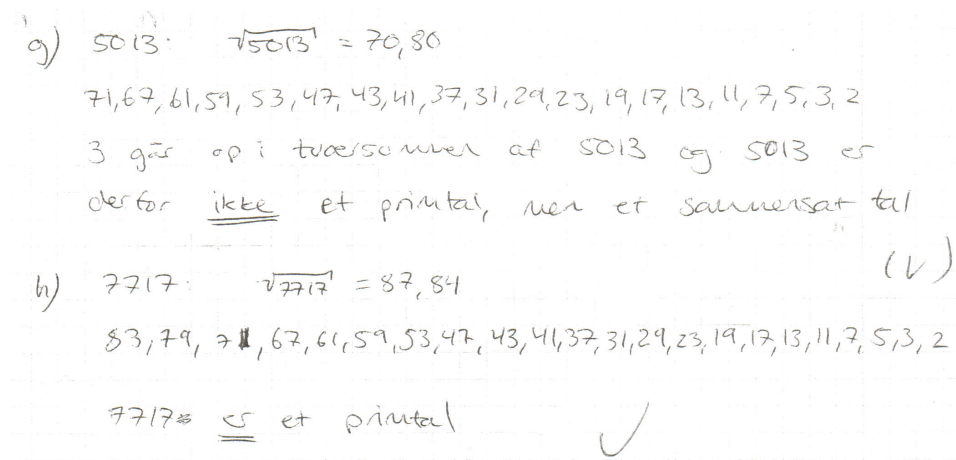 g) 5013: √5013 = 70,80
71,67,61,59,53,47,43,41,37,31,29,23,19,17,13,11,7,5,3,2
3 går op i tværsummen af 5013 og 5013 er
derfor ikke et primtal, men et sammensat tal
(√)
h) 7717: √7717 = 87,84
83,79,71,67,61,59,53,47,43,41,37,31,29,23,19,17,13,11,7,5,3,2
7717 er et primtal ✓